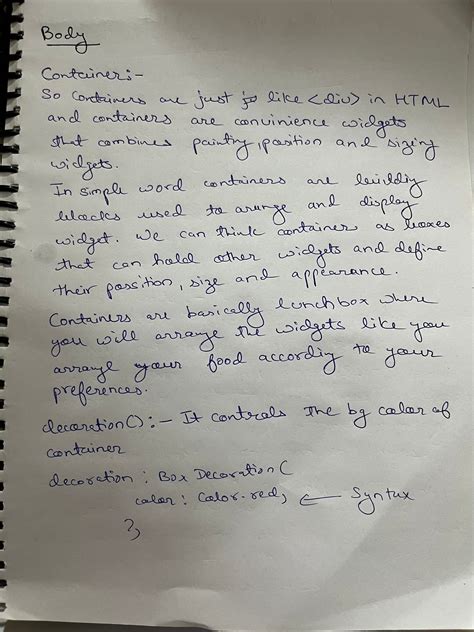 Body
Container:-
So Containers are just like <div> in HTML
and containers are convinience widgets
that combines painting, position and sizing
widgets.
In simple word containers are building
blocks used to arange and display
widget. We can think container as boxes
that can hold other widgets and define
their possition, size and appearance.
Containers are basically lunchbox where
you will arrange the widgets like you
arrange your food accordig to your
preferences.
decoration():- It controls The bg color of
container
decoration : Box Decoration (
color : Color.red, ← Syntax
),